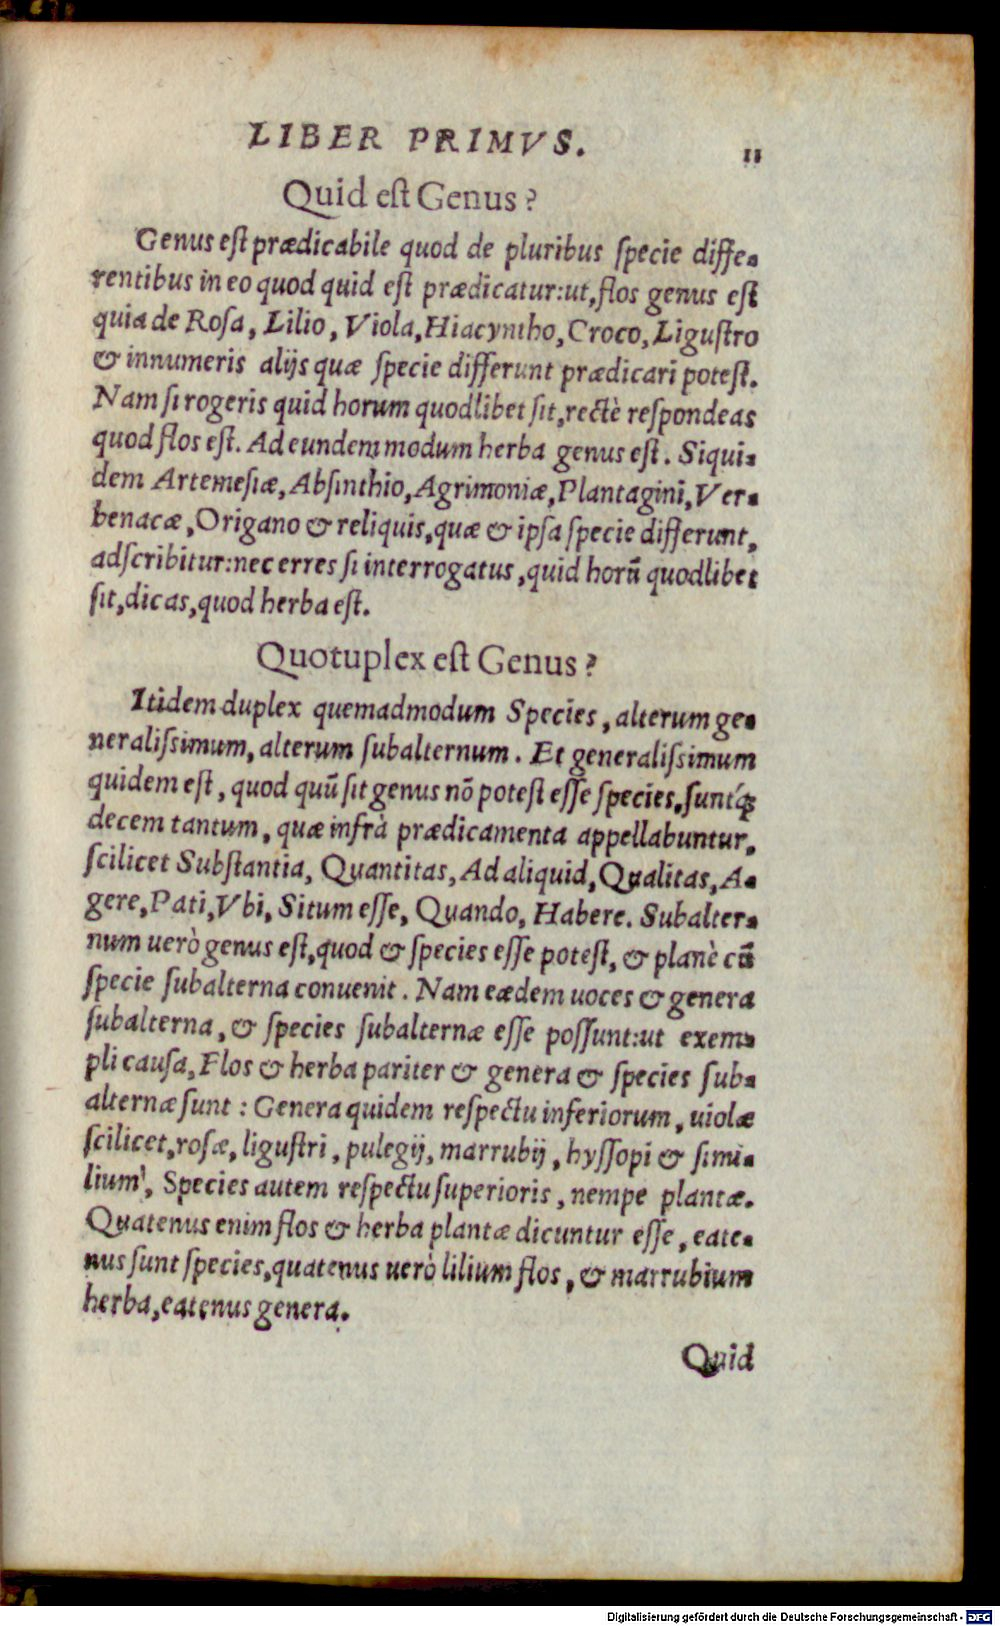 LIBER PRIMVS.
11
Quid eſt Genus?
Genus eſt prædicabile quod de pluribus ſpecie diffe-
rentibus in eo quod quid eſt prædicatur:ut, flos genus eſt
quia de Roſa, Lilio, Viola, Hiacyntho, Croco, Liguſtro
& innumeris alijs quæ ſpecie differunt prædicari poteſt.
Nam ſi rogeris quid horum quodlibet ſit, rectè reſpondeas
quod flos eſt. Ad eundem modum herba genus eſt. Siqui-
dem Artemeſiæ, Abſinthio, Agrimoniæ, Plantagini, Ver-
benacæ, Origano & reliquis, quæ & ipſa ſpecie differunt,
adſcribitur: nec erres ſi interrogatus, quid horũ quodlibet
ſit, dicas, quod herba eſt.
Quotuplex eſt Genus?
Itidem duplex quemadmodum Species, alterum ge-
neraliſsimum, alterum ſubalternum. Et generaliſsimum
quidem eſt, quod quũ ſit genus nõ poteſt eſſe ſpecies, ſuntq́;
decem tantum, quæ infrà prædicamenta appellabuntur,
ſcilicet Subſtantia, Quantitas, Ad aliquid, Qualitas, A-
gere, Pati, Vbi, Situm eſſe, Quando, Habere. Subalter-
num uerò genus eſt, quod & ſpecies eſſe poteſt, & planè cũ
ſpecie ſubalterna conuenit. Nam eædem uoces & genera
ſubalterna, & ſpecies ſubalternæ eſſe poſſunt:ut exem-
pli cauſa, Flos & herba pariter & genera & ſpecies ſub-
alternæ ſunt: Genera quidem reſpectu inferiorum, uiolæ
ſcilicet, roſæ, liguſtri, pulegij, marrubij, hyſſopi & ſimi-
lium, Species autem reſpectu ſuperioris, nempe plantæ.
Quatenus enim flos & herba plantæ dicuntur eſſe, eate-
nus ſunt ſpecies, quatenus uerò lilium flos, & marrubium
herba, eatenus genera.
Quid
Digitalisierung gefördert durch die Deutsche Forschungsgemeinschaft - DFG